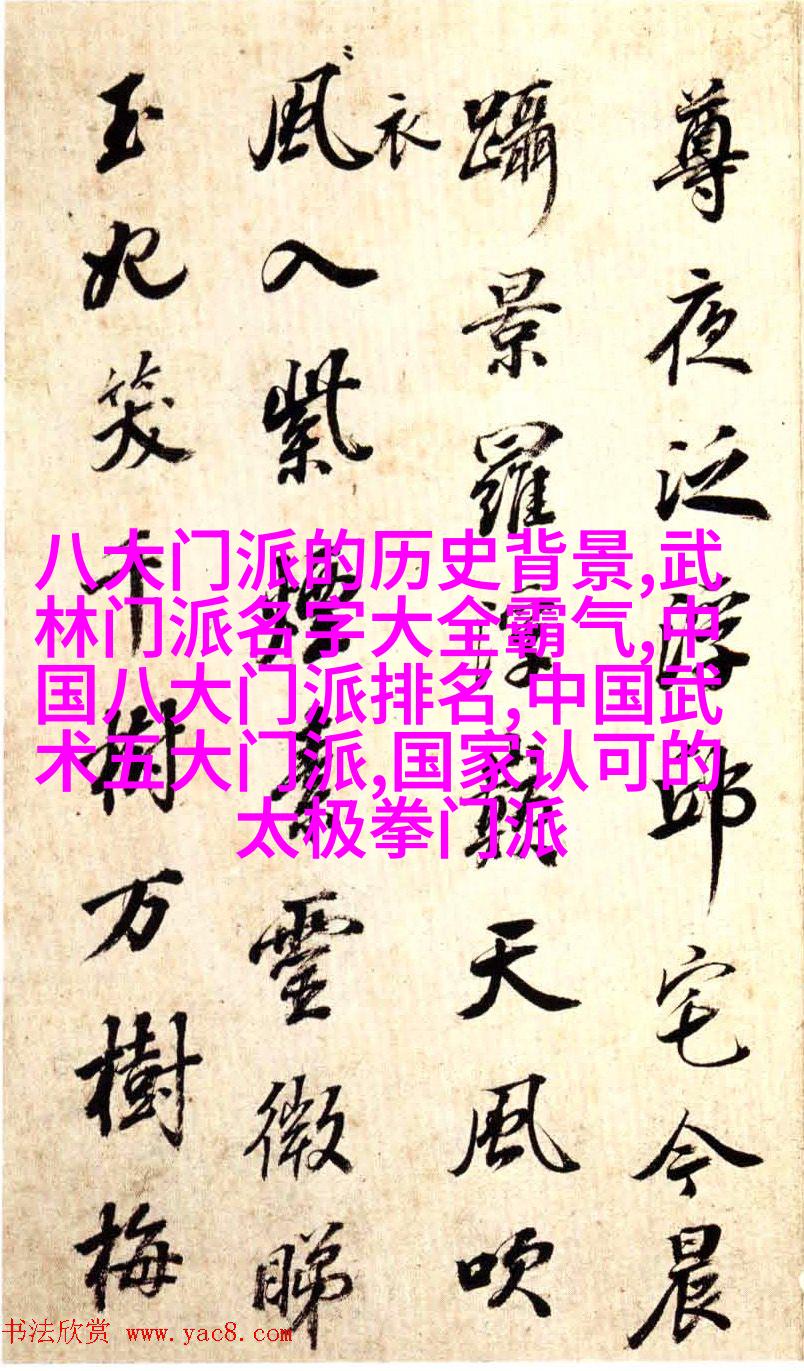 尊夜泛浮邱宅今晨
躡景羅浮巔天風吹
衣
風入紫煙素靈微睇
玉妃笑千樹万樹梅
八大门派的历史背景,武
林门派名字大全霸气,中
国八大门派排名,中国武
术五大门派,国家认可的
太极拳门派
书法欣赏 www.yac8.com